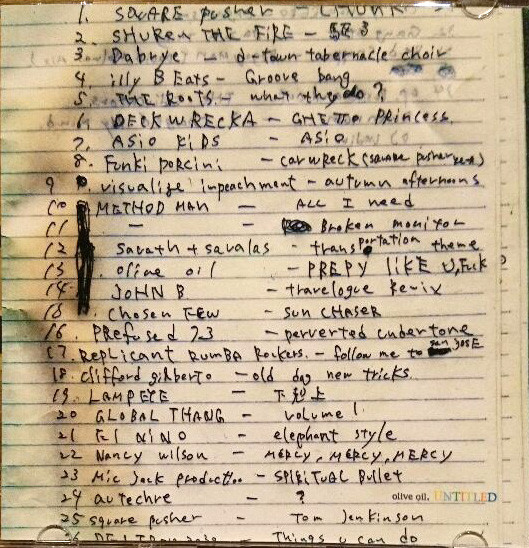 1. SQUARE pusher - CHUNK
2. SHUREN THE FIRE - 3
3. Dabrye - d-town tabernacle choir
4 illy B Eats - Groove bang
5 THE ROOTS - what they do?
6 DECKWRECKA - GHETTO PRINCESS.
7. ASIO KIDS - ASIO
8. Funki porcini - carwreck (square pusher )
9. visualize impeachment - autumn afternoons
10 METHOD MAN - ALL I need
11 - Broken monitor
12 Savath + savalas - transportation theme
13 . olive oil - PREPY LIKE U,FUCK
14 JOHN B - travelogue remix
15 . Chosen FEW - sun CHASER
16. PREfused 73 - perverted undertone
17. Replicant RUMBA Rockers. - follow me to san JOSE
18. clifford gilberto - old dog new tricks
19. LAMPETE - 下剋上
20 GLOBAL THANG - volume 1.
21 El NINO - elephant style
22 Nancy wilson - MERCY, MERCY, MERCY
23 Mic Jack product.. - SPIRITUAL Bullet
24 autechre - ?
olive oil. UNTITLED
25 square pusher - Tom Jenkinson
26 - Things u can do